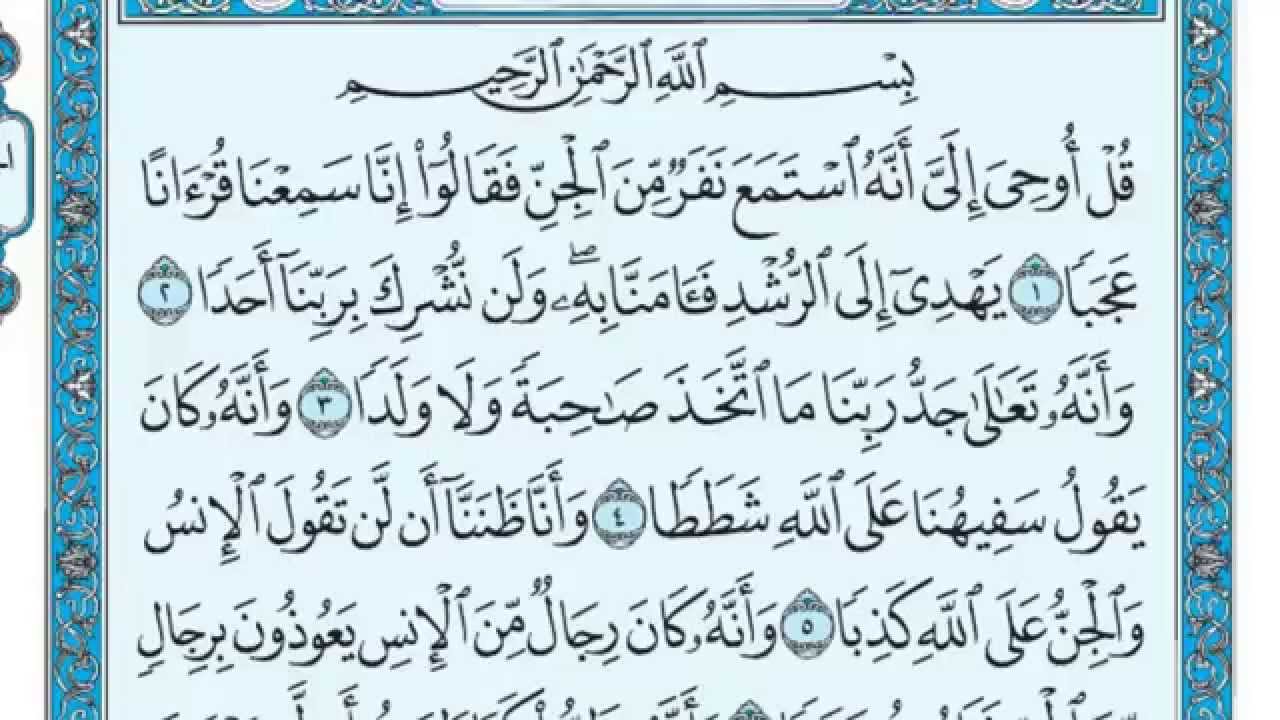 بِسْمِ ٱللَّهِ ٱلرَّحْمَٰنِ ٱلرَّحِيمِ
قُلْ أُوحِىَ إِلَىَّ أَنَّهُ ٱسْتَمَعَ نَفَرٌ مِّنَ ٱلْجِنِّ فَقَالُوٓا۟ إِنَّا سَمِعْنَا قُرْءَانًا
عَجَبًا ١ يَهْدِىٓ إِلَى ٱلرُّشْدِ فَـَٔامَنَّا بِهِۦ ۖ وَلَن نُّشْرِكَ بِرَبِّنَآ أَحَدًا ٢
وَأَنَّهُۥ تَعَٰلَىٰ جَدُّ رَبِّنَا مَا ٱتَّخَذَ صَٰحِبَةً وَلَا وَلَدًا ٣ وَأَنَّهُۥ كَانَ
يَقُولُ سَفِيهُنَا عَلَى ٱللَّهِ شَطَطًا ٤ وَأَنَّا ظَنَنَّآ أَن لَّن تَقُولَ ٱلْإِنسُ
وَٱلْجِنُّ عَلَى ٱللَّهِ كَذِبًا ٥ وَأَنَّهُۥ كَانَ رِجَالٌ مِّنَ ٱلْإِنسِ يَعُوذُونَ بِرِجَالٍ